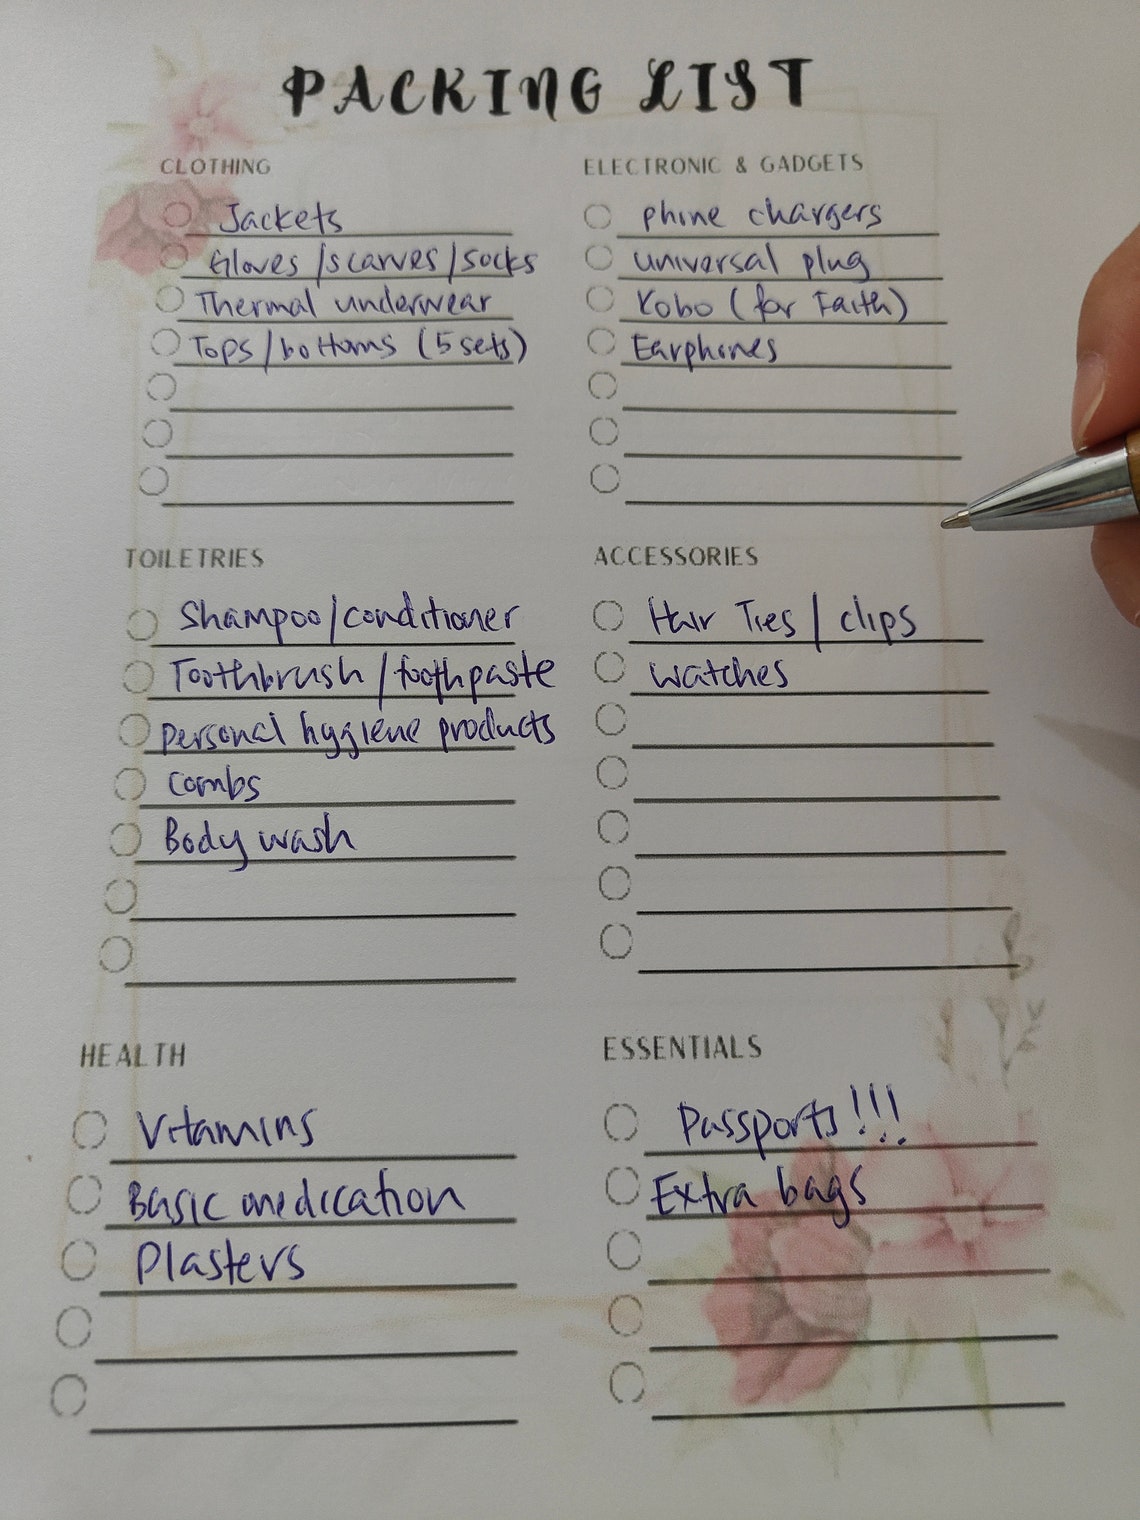 PACKING LIST
CLOTHING
Jackets
Gloves/scarves/socks
Thermal underwear
Tops/bottoms (5 sets)
ELECTRONIC & GADGETS
phone chargers
universal plug
Kobo (for Faith)
Earphones
TOILETRIES
Shampoo/conditioner
Toothbrush/toothpaste
personal hygiene products
combs
Body wash
ACCESSORIES
Hair Ties/clips
watches
HEALTH
Vitamins
Basic medication
Plasters
ESSENTIALS
Passports!!!
Extra bags